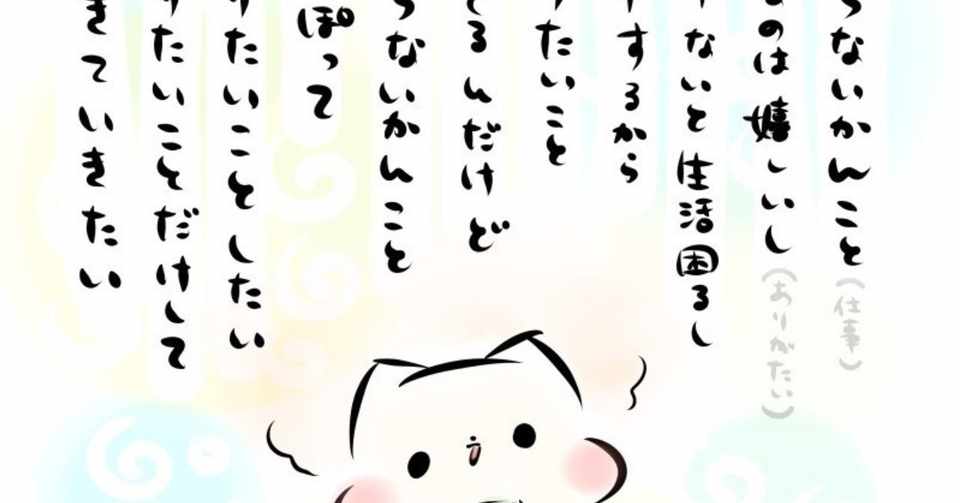 らないかんこと（仕事）
のは嬉しいし（ありがたい）
ないと生活困るし
するから
たいこと
るんだけど
らないかんこと
ぽって
りたいことしたい
りたいことだけして
きていきたい